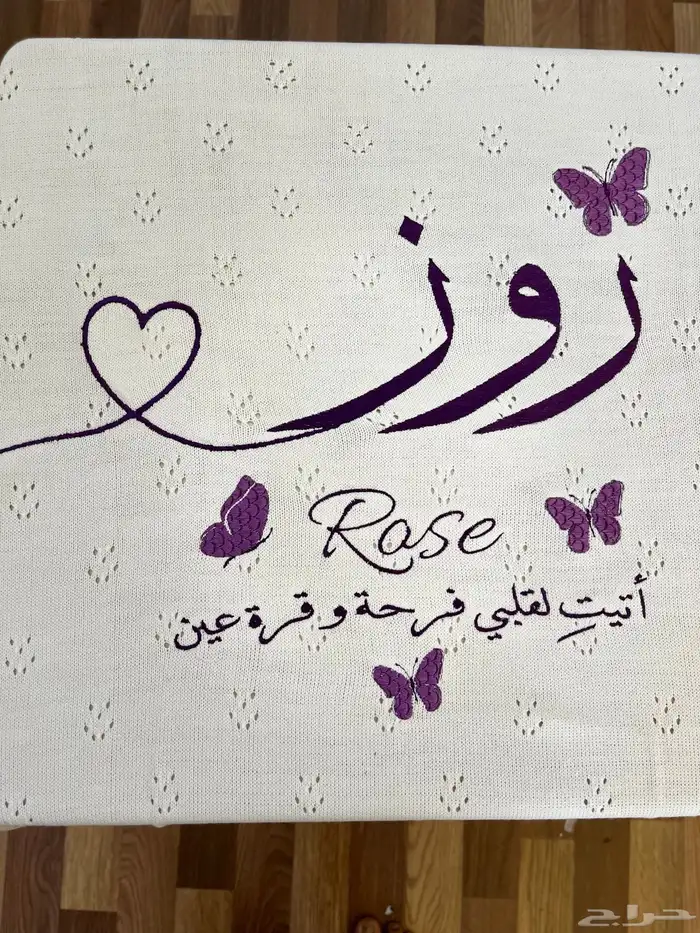 روز
Rose
أتيتِ لقلبي فرحة و قرة عين
حراج